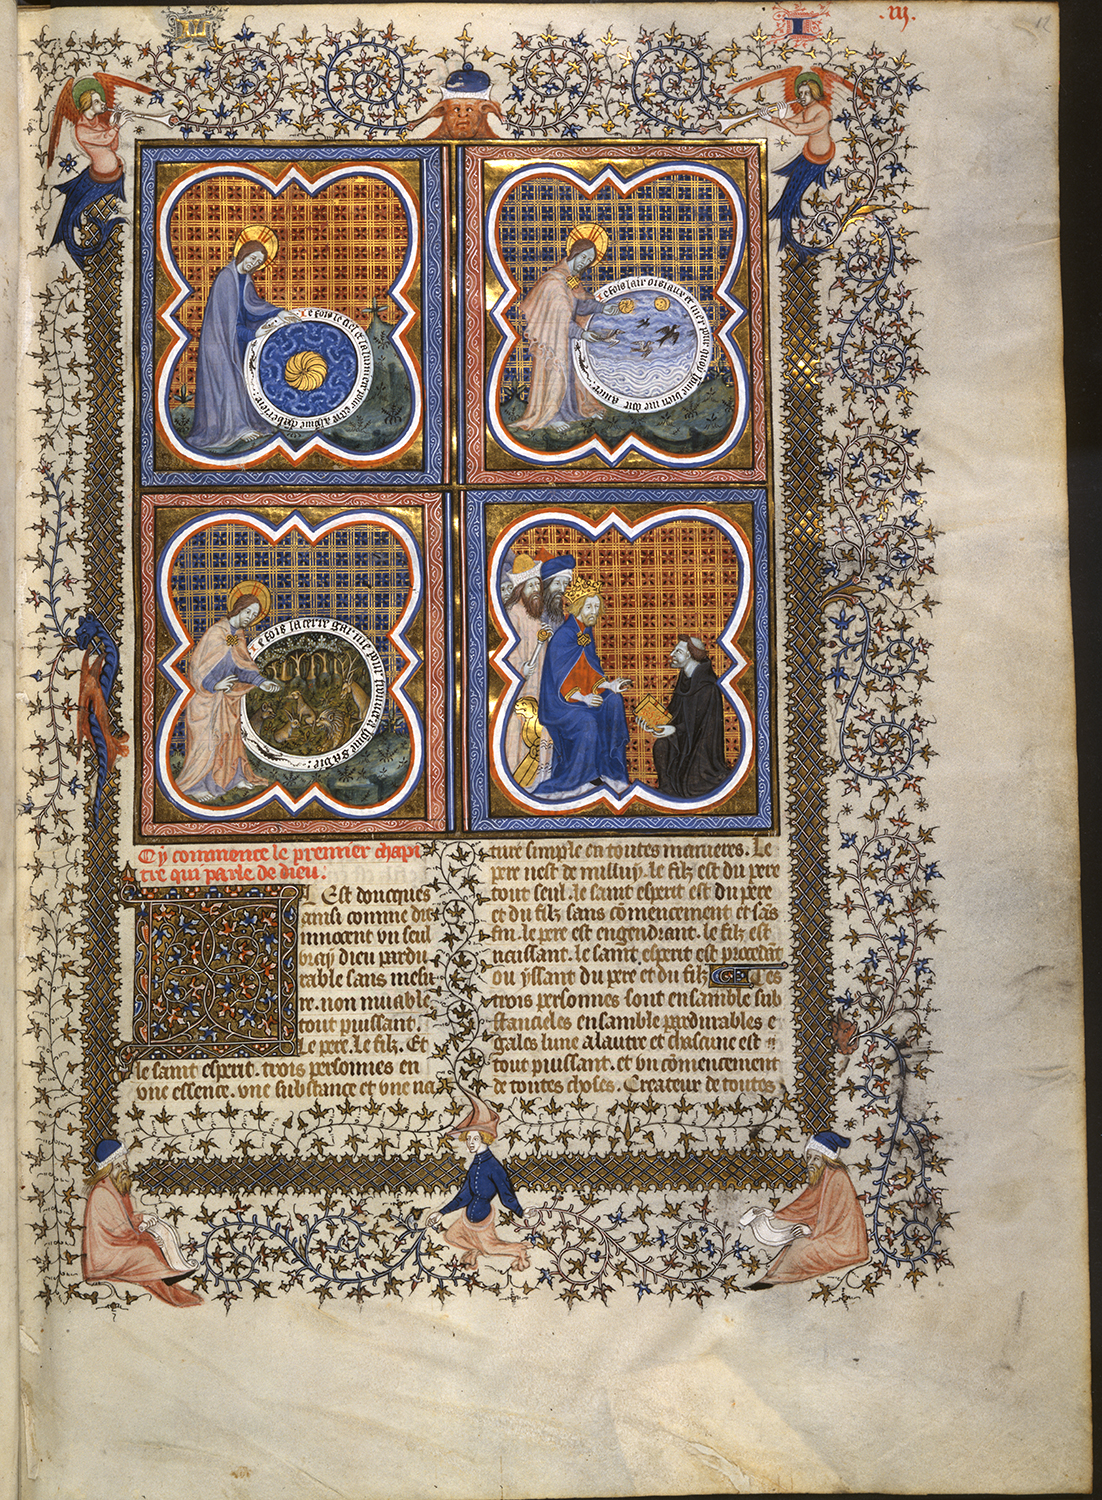 .iij.
12
Je fois le ciel et
Je fois lair oisiaux et mer pour quoy
Je fois la terre garnie pour
Cy commence le premier chapi
tre qui parle de dieu.
Il Est doncques
ainsi comme dit
innocent vn seul
vray dieu pardu
rable sans mesu
re. non muable
tout puissant.
Le pere. Le filz. Et
le saint esperit. trois personnes en
vne essence. vne substance et vne na
ture simple en toutes manieres. Le
pere nest de nulluy. le filz est du pere
tout seul. le saint esperit est du pere
et du filz sans cōmencement et sās
fin. le pere est engendrant. le filz est
neissant. le saint esperit est procedāt
ou yssant du pere et du filz
trois personnes sont ensamble sub
stancieles ensamble pardurables e
gales lune a lautre et chascune est
tout puissant. et vn cōmencement
de toutes choses. Createur de toutes